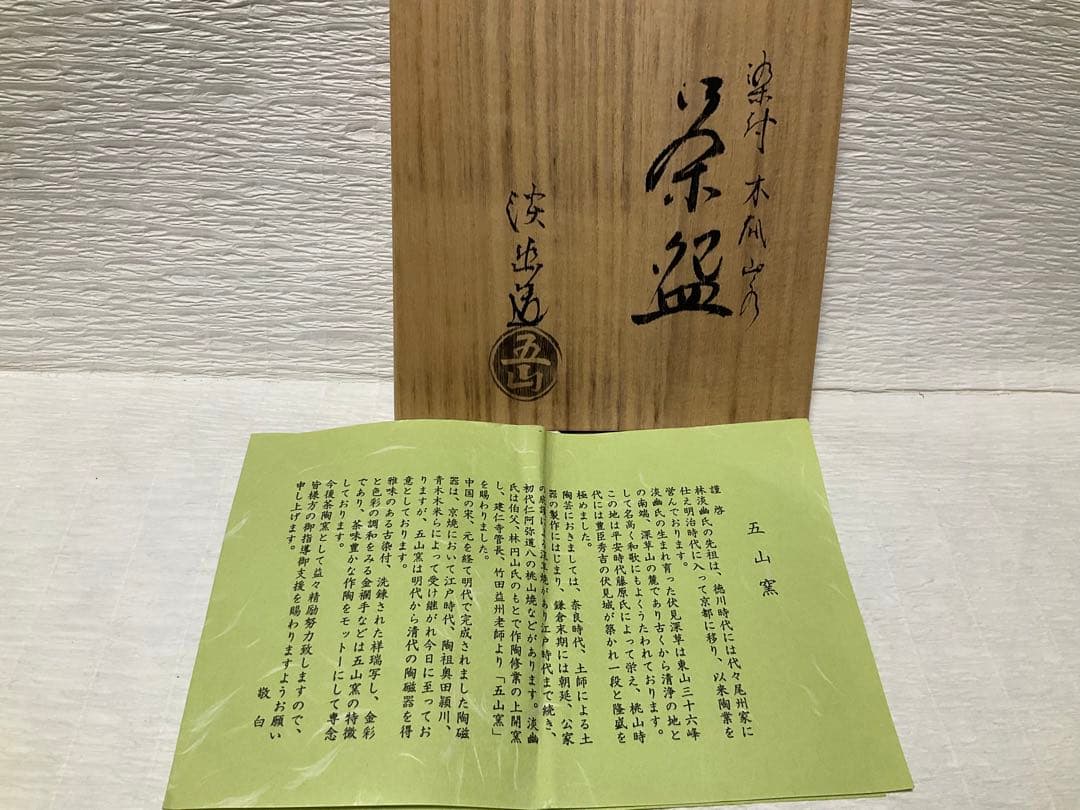 染付 木瓜山水
茶盌
淡幽造
五山
五山窯
謹啓
林淡幽氏の先祖は、徳川時代には代々尾州家に
仕え明治時代に入って京都に移り、以来陶業を
営んでおります。
淡幽氏の生まれ育った伏見深草は東山三十六峰
の南端、深草山の麓であり古くから清浄の地と
して名高く和歌にもよくうたわれております。
この地は平安時代藤原氏によって栄え、桃山時
代には豊臣秀吉の伏見城が築かれ一段と隆盛を
極めました。
陶芸におきましては、奈良時代、土師による土
器の製作にはじまり、鎌倉末期には朝廷、公家
があり江戸時代まで続き、
初代仁阿弥道八の桃山焼などがあります。淡幽
氏は伯父、林円山氏のもとで作陶修業の上開窯
し、建仁寺管長、竹田益州老師より「五山窯」
を賜わりました。
中国の宋、元を経て明代で完成されました陶磁
器は、京焼において江戸時代、陶祖奥田穎川、
青木木米らによって受け継がれ今日に至ってお
りますが、五山窯は明代から清代の陶磁器を得
意としております。
雅味のある古染付、洗錬された祥瑞写し、金彩
と色彩の調和をみる金襴手などは五山窯の特徴
であり、茶味豊かな作陶をモットーにして専念
しております。
今後茶陶窯として益々精励努力致しますので、
皆様方の御指導御支援を賜わりますようお願い
申し上げます。
敬白